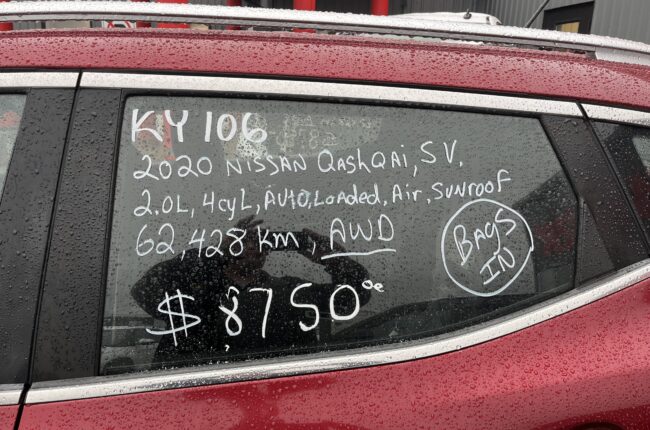 KY 106
2020 NISSAN QashQai, SV,
2.0L, 4cyL, AUto, Loaded, Air, SunrooF
62,428 Km, AWD
BAgS
IN
$8750.00